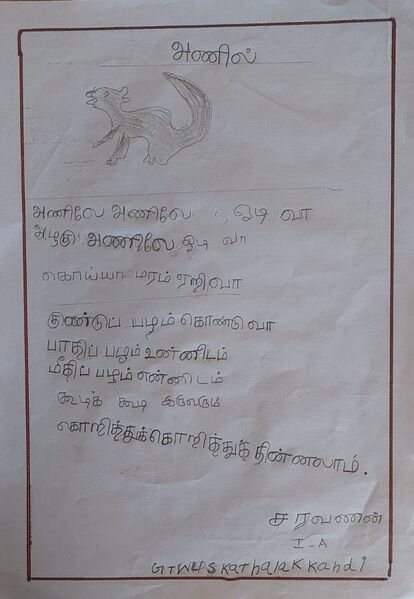 அணில்
அணிலே அணிலே ஓடி வா
அழகு அணிலே ஓடி வா
கொய்யா மரம் ஏறி வா
குண்டுப் பழம் கொண்டுவா
பாதிப் பழம் உன்னிடம்
மீதிப் பழம் என்னிடம்
கூடிக் கூடி இருவரும்
கொறித்துக்கொறித்துத் தின்னலாம்.
சரவணன்
I-A
GTWHS Kathalakkandi